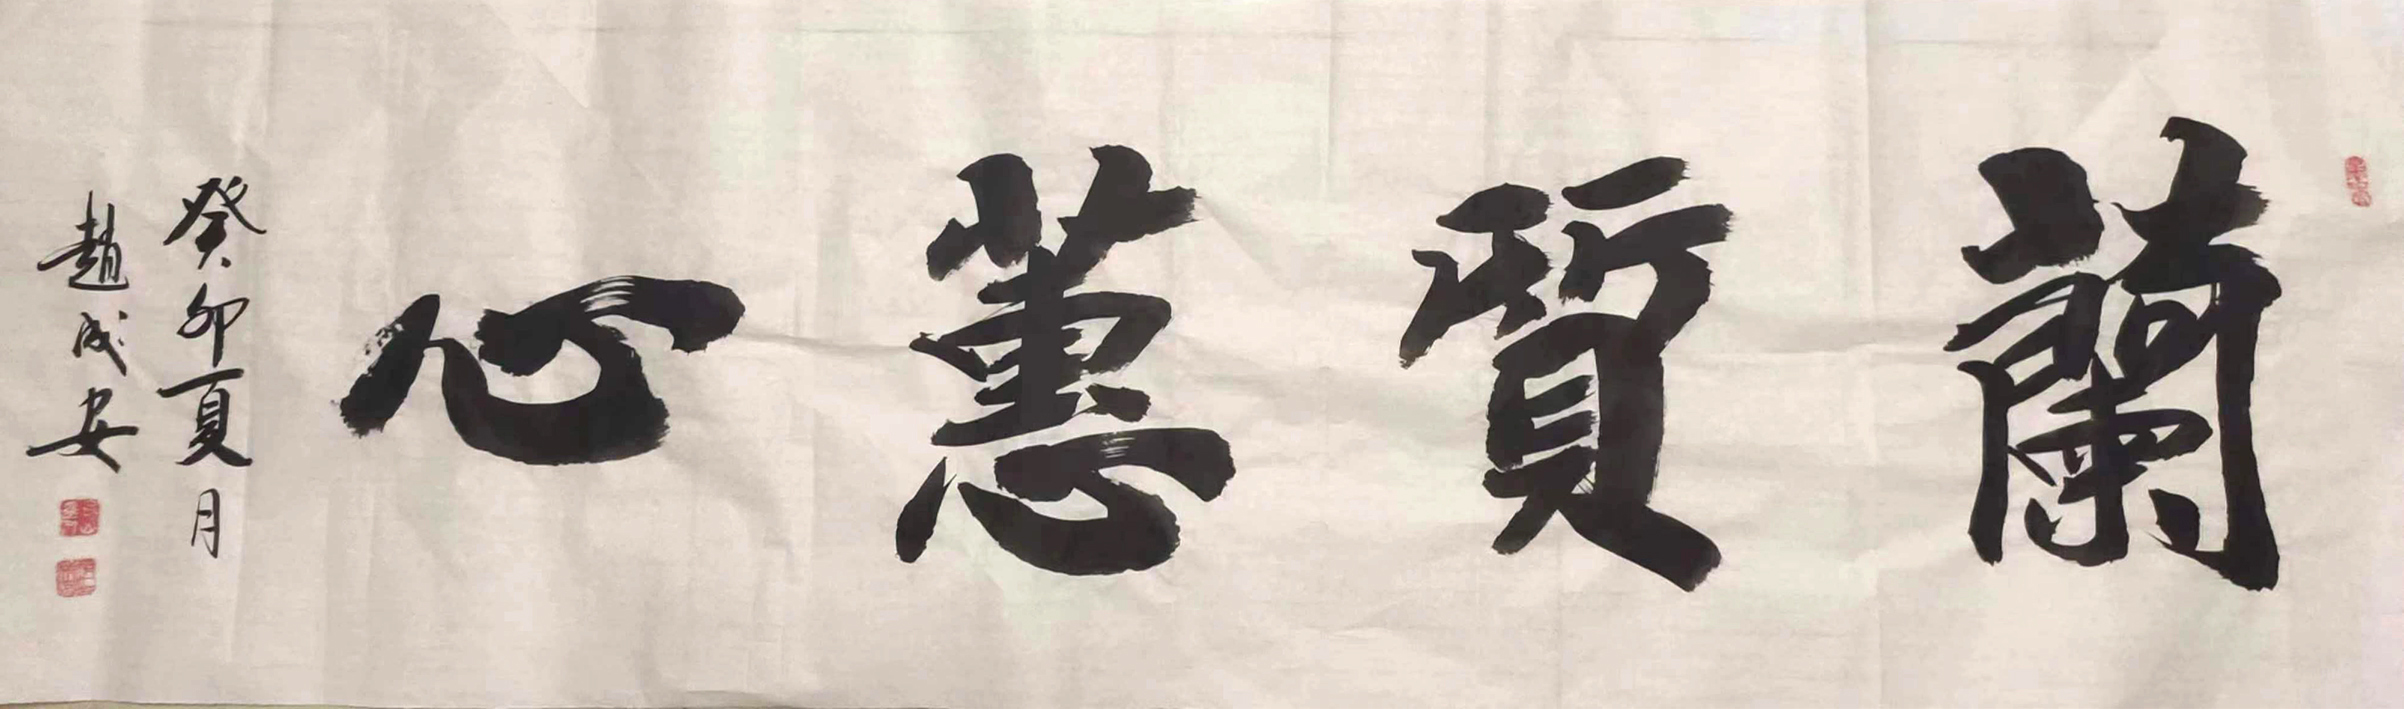 蘭質蕙心
癸卯夏月
趙成安